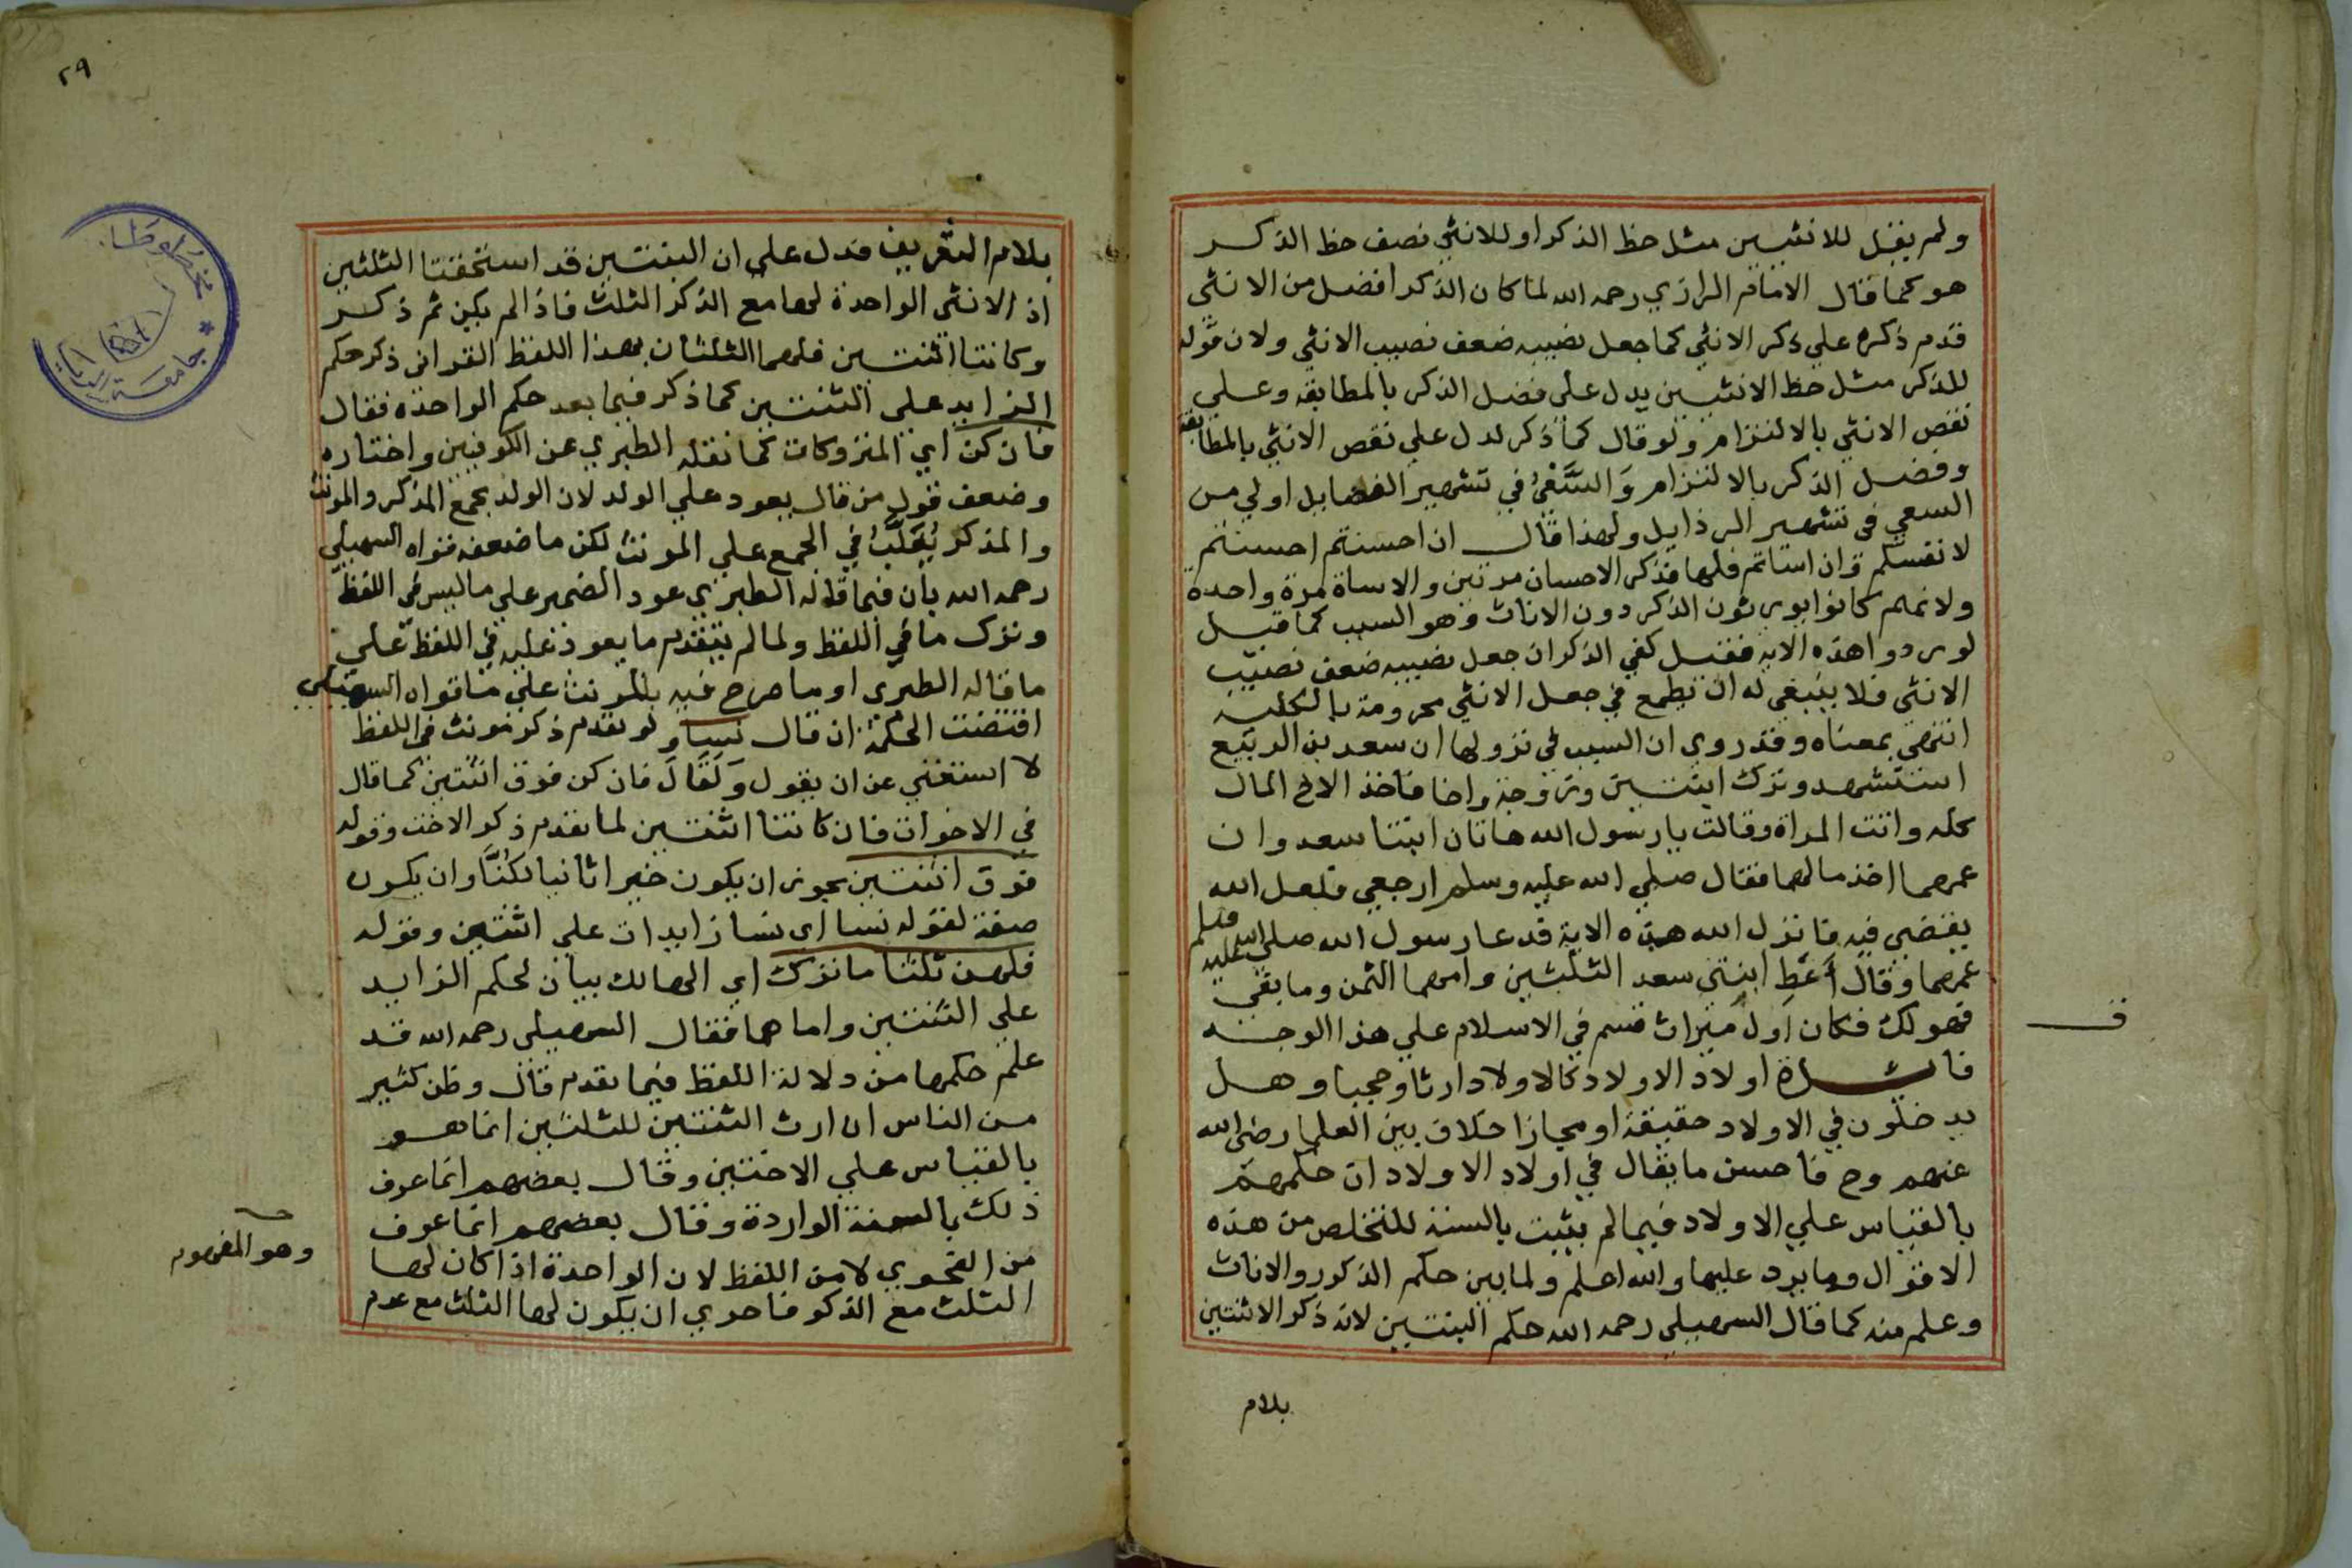 ولم يقل للانثيين مثل حظ الذكر او للانثي نصف حظ الذكر
هو كما قال الامام الرازي رحمه الله لما كان الذكر افضل من الانثي
قدم ذكره علي ذكر الانثي كما جعل نصيبه ضعف نصيب الانثي ولان قوله
للذكر مثل حظ الانثيين يدل علي فضل الذكر بالمطابقه وعلي
نقص الانثي بالالتزام ولو قال كما ذكر لدل علي نقص الانثي بالمطابقة
وفضل الذكر بالالتزام وَالسَّعْيُ في تشهير الفضايل اولي من
السعي في تشهير الرذايل ولهذا قال ان احسنتم احسنتم
لانفسكم وان اساتم فلها فذكر الاحسان مرتين والاساة مرة واحدة
ولانهم كانوا يورثون الذكر دون الاناث وهو السبب كما قيل
لورود هذه الايه فقيل كفي الذكر ان جعل نصيبه ضعف نصيب
الانثي فلا ينبغي له ان يطمع في جعل الانثي محرومة بالكليه
انتهي بمعناه وقد روي ان السبب في نزولها ان سعد بن الربيع
استشهد وترك ابنتين وزوجة واخا فاخذ الاخ المال
كله واتت المراة وقالت يا رسول الله هاتان ابنتا سعد وان
عمهما اخذ مالهما فقال صلي الله عليه وسلم ارجعي فلعل الله
يقضي فيه فانزل الله هذه الاية فدعا رسول الله صلي الله عليه وسلم
عمهما وقال أعْطِ ابنتي سعد الثلثين وامهما الثمن وما بقي
فهو لك فكان اول ميراث قسم في الاسلام علي هذا الوجه
ف
اولاد الاولاد كالاولاد ارثا وحجبا وهل
يدخلون في الاولاد حقيقة او مجازا خلاف بين العلما رضي الله
عنهم وح فاحسن ما يقال في اولاد الاولاد ان حكمهم
بالقياس علي الاولاد فيما لم يثبت بالسنة للتخلص من هذه
الاقوال وما يرد عليها والله اعلم ولما بين حكم الذكور والاناث
وعلم منه كما قال السهيلي رحمه الله حكم البنتين لانه ذكر الانثيين
بلام
٢٩
بلام التعريف فدل علي ان البنتين قد استحقتا الثلثين
اذ الانثي الواحدة لها مع الذكر الثلث فاذا لم يكن ثم ذكر
وكانتا اثنتين فلهما الثلثان بهذا اللفظ القراني ذكر حكم
الزايد علي الثنتين كما ذكر فيما بعد حكم الواحده فقال
فان كن اي المتروكات كما نقله الطبري عن الكوفيين واختاره
وضعف قول من قال يعود علي الولد لان الولد يجمع المذكر والمونث
والمذكر يُغَلَّبُ في الجمع علي المونث لكن ما ضعفه قواه السهيلي
رحمه الله بان فيما قاله الطبري عود الضمير علي ما ليس في اللفظ
وترك ما في اللفظ ولما لم يتقدم ما يعود عليه في اللفظ علي
ما قاله الطبري او ما صرح فيه بالمونث علي ما قواه السهيلي
اقتضت الحكمة ان قال نساء ولو تقدم ذكر مونث في اللفظ
لاستغني عن ان يقول وَلَقَالَ فان كن فوق اثنتين كما قال
في الاخوات فان كانتا اثنتين لما تقدم ذكر الاخت وقوله
فوق اثنتين يجوز ان يكون خبرا ثانيا لكُنَّ وان يكون
صفة لقوله نسا اي نسا زايدات علي اثنتين وقوله
فلهن ثلثا ما ترك اي الهالك بيان لحكم الزايد
علي الثنتين واما هما فقال السهيلي رحمه الله قد
علم حكمها من دلالة اللفظ فيما تقدم قال وظن كثير
من الناس ان ارث الثنتين للثلثين انما هو
بالقياس علي الاختين وقال بعضهم انما عرف
ذلك بالسنة الواردة وقال بعضهم انما عرف
من الفحوي لا من اللفظ لان الواحدة اذا كان لها
وهو المفهوم
الثلث مع الذكر فاحري ان يكون لها الثلث مع عدم